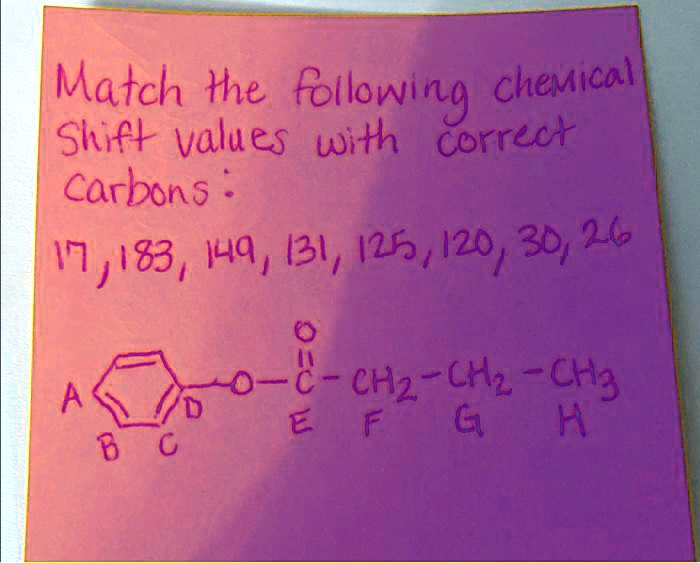 Match the following chemical
Shift values with correct
Carbons:
17, 183, 149, 131, 125, 120, 30, 26
O
A D -O-C-CH2-CH2-CH3
B C E F G H